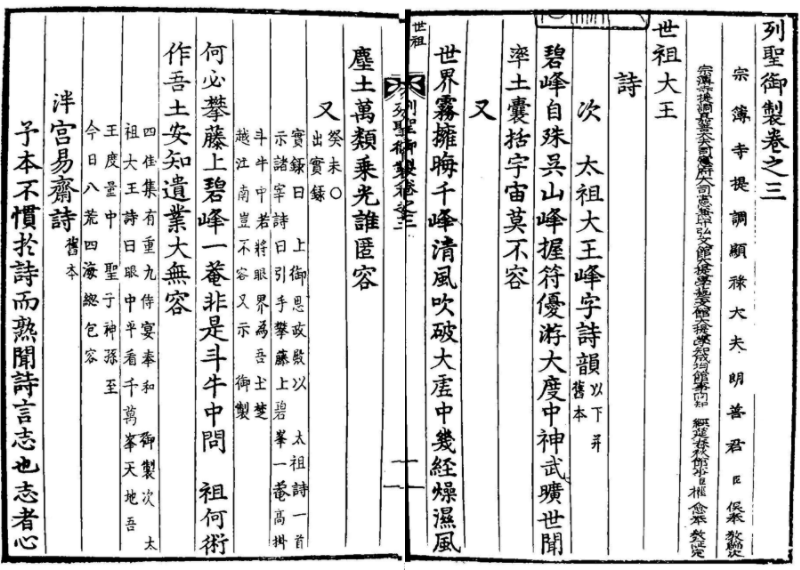 列聖御製卷之三
宗簿寺提調顯祿大夫朗善君臣俁奉教編次
世祖大王
詩
次 太祖大王峰字詩韻以下并舊本
碧峰自殊吳山峰握符優游大度中神武曠世聞
率土囊括字宙莫不容
又
世界霧擁晦千峰清風吹破大虛中幾經燥濕風
世祖
列聖御製卷之三
一
塵土萬類乘光誰匿容
又癸未○出實錄
實錄曰 上御思政殿以 太祖詩一首
示諸宰詩曰引手攀藤上碧峯一菴高掛
斗牛中若將眼界為吾土楚
越江南豈不容又示 御製
何必攀藤上碧峰一菴非是斗牛中問 祖何術
作吾土安知遺業大無容
四佳集有重九侍宴奉和 御製次 太
祖大王詩曰眼中平看千萬峯天地吾
王度量中 聖子神孫至
今日八荒四海緫包容
泮宮易齋詩舊本
予本不慣於詩而熟聞詩言志也志者心